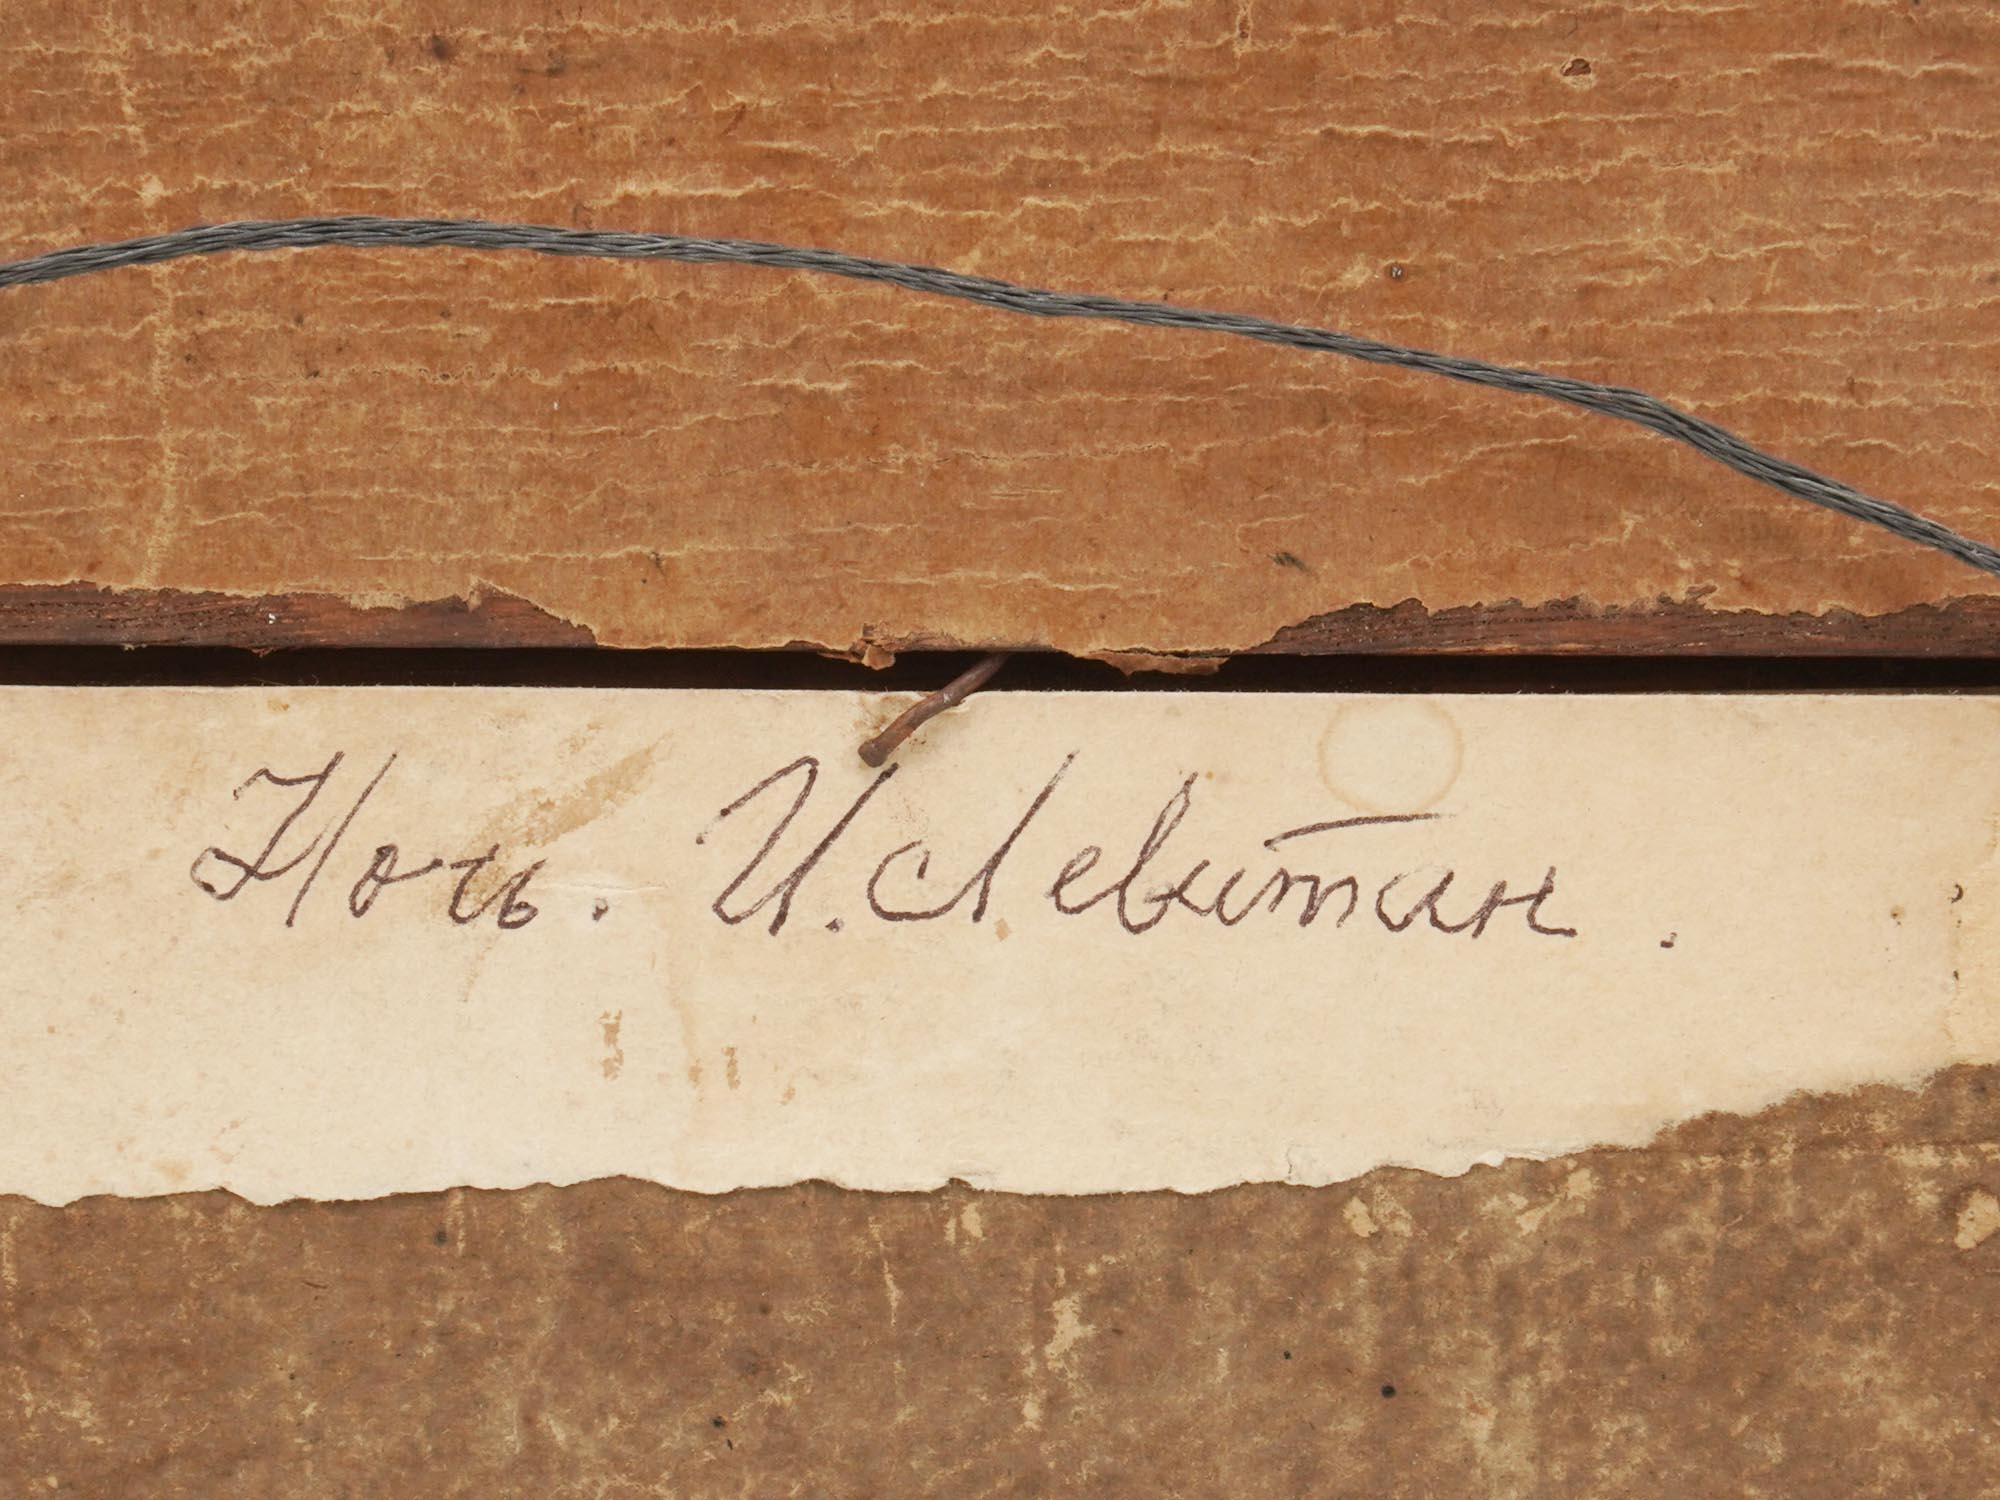 Ночь. И. Левитан.